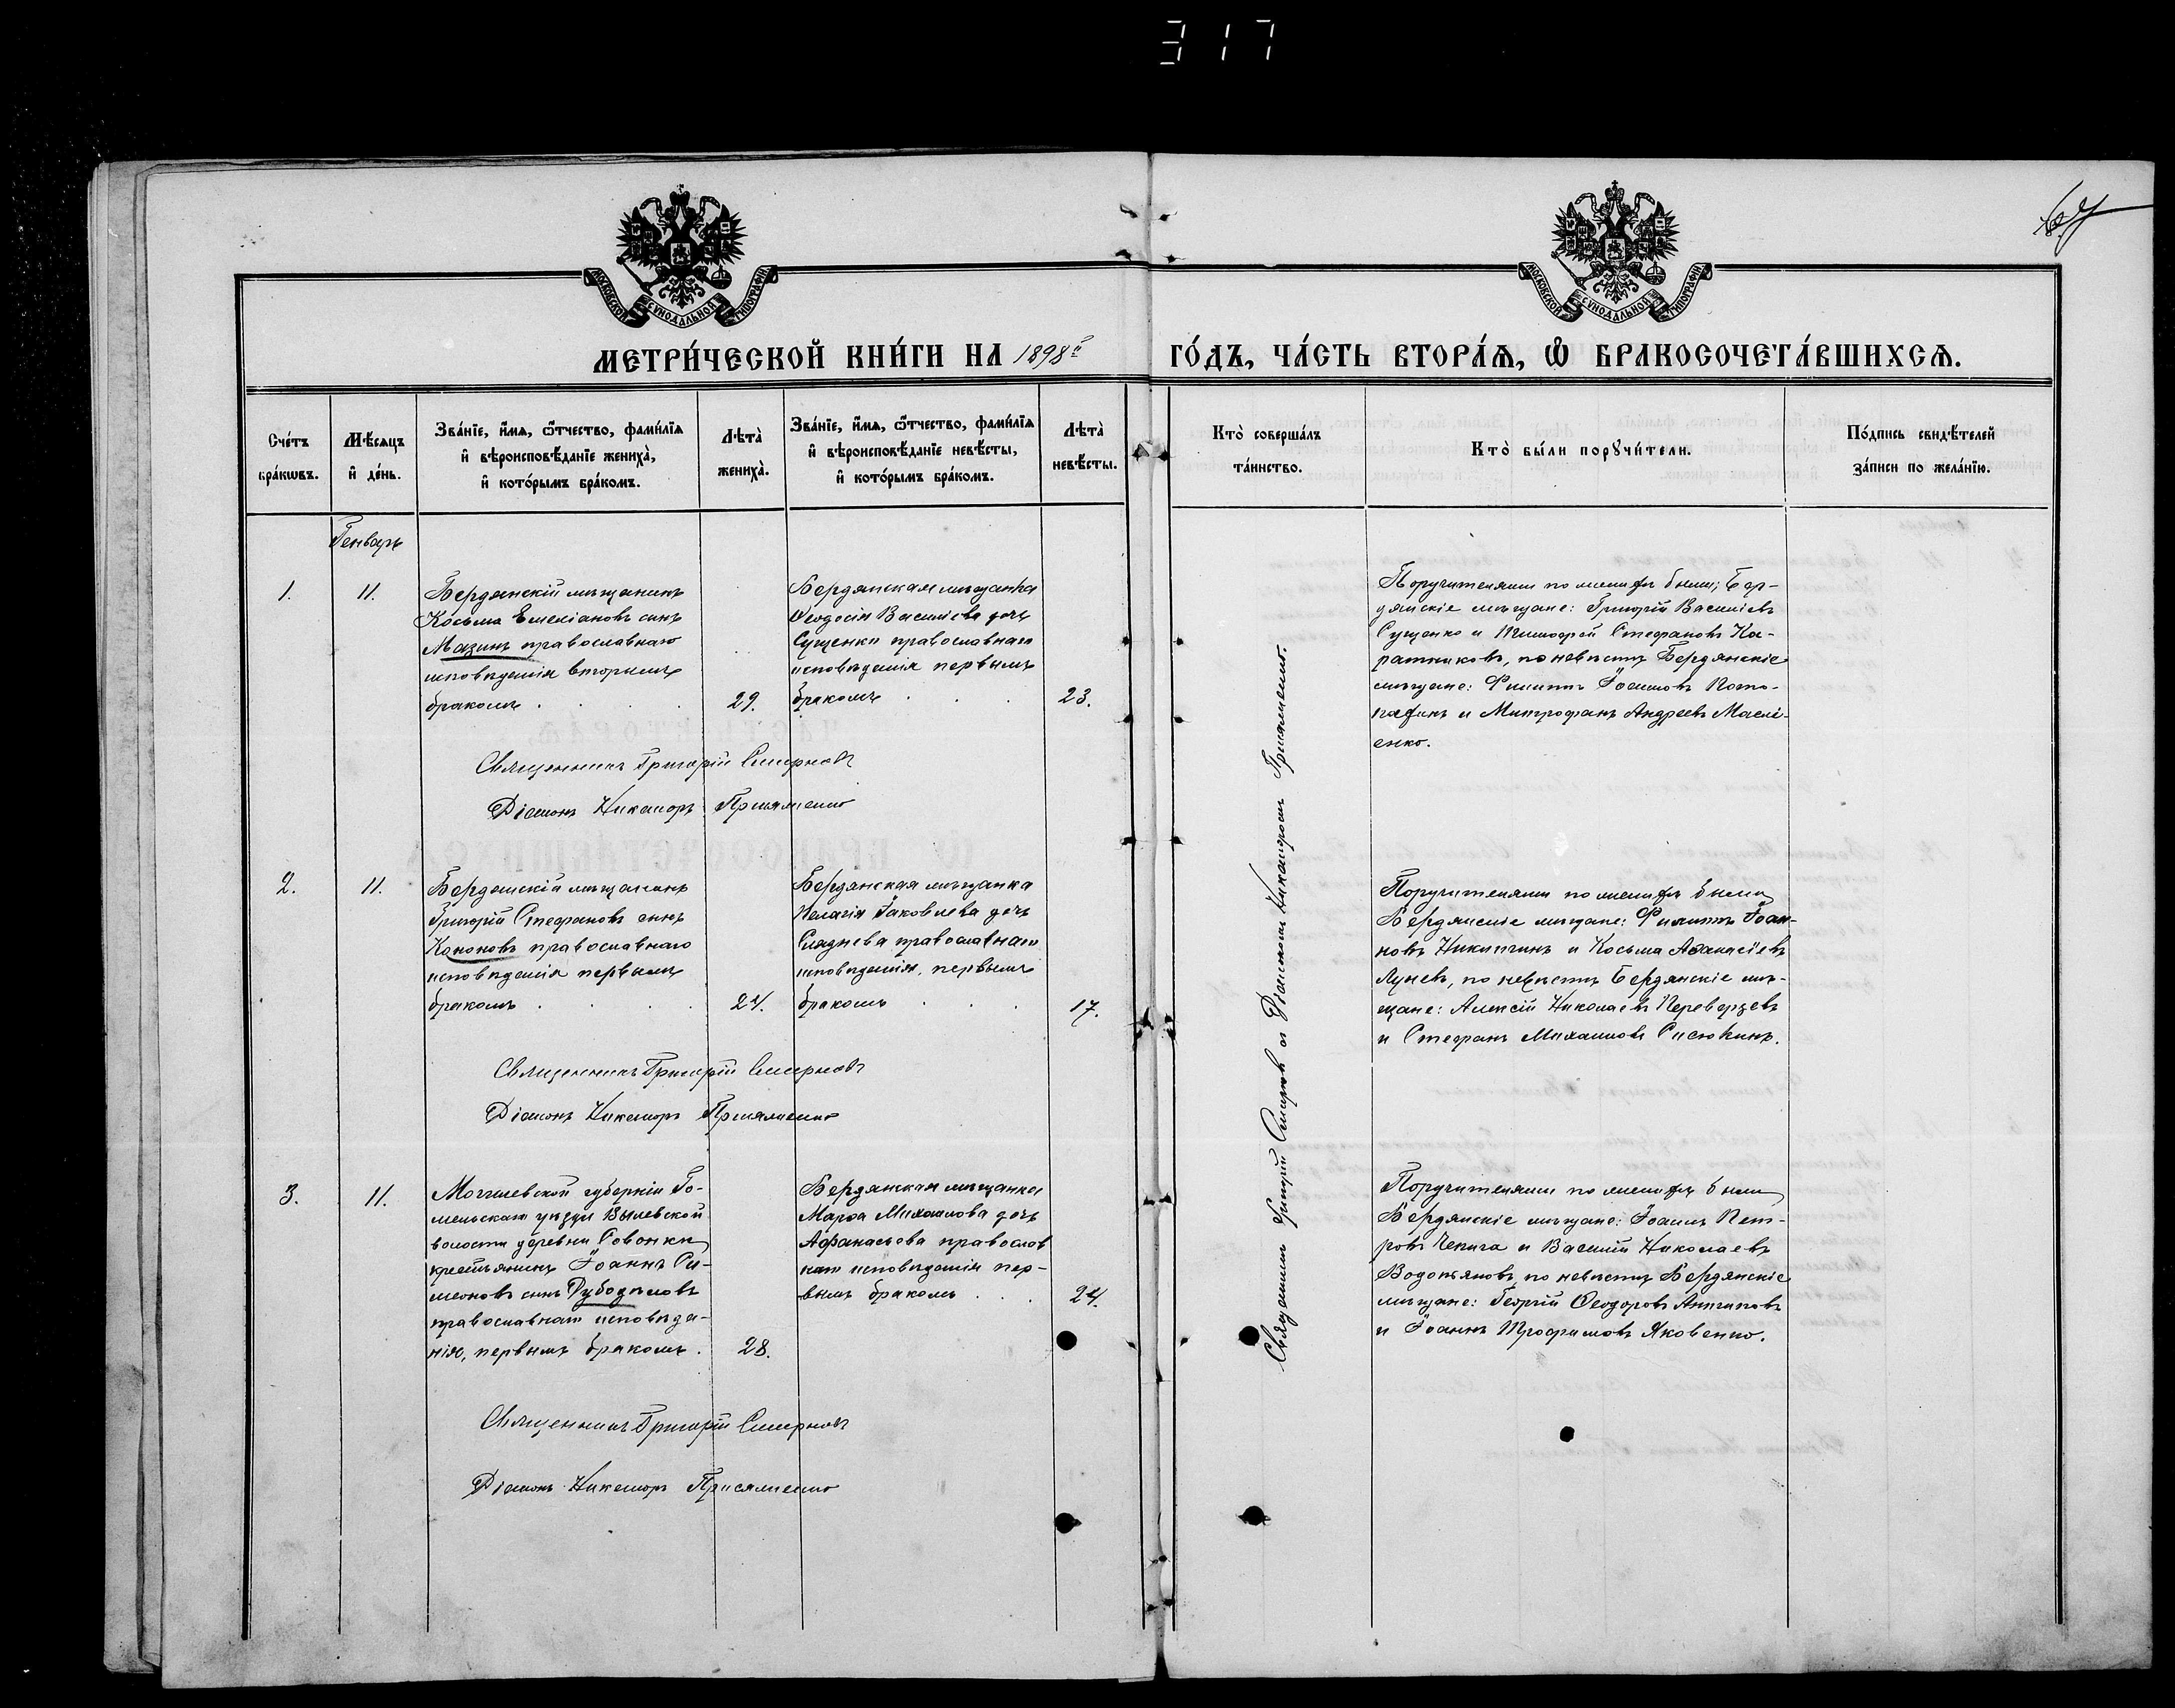 317
67
МОСКОВСКОЙ СѴНОДАЛЬНОЙ ТИПОГРАФІИ
МОСКОВСКОЙ СѴНОДАЛЬНОЙ ТИПОГРАФІИ
МЕТРИ́ЧЕСКОЙ КНИ́ГИ НА 1898й ГО́ДЪ, ЧА́СТЬ ВТОРА́Ѧ, Ѡ҆ БРАКОСОЧЕТА́ВШИХСѦ.
Сче́тъ бра́кѡвъ.
Мѣ́сѧцъ и҆ де́нь.
Зва́нїе, и҆́мѧ, ѻ҆́тчество, фамѝлїѧ
и҆ вѣроисповѣ́данїе жениха̀,
и҆ кото́рымъ бра́комъ.
Лѣта̀ жениха̀.
Зва́нїе, и҆́мѧ, ѻ҆́тчество, фамѝлїѧ
и҆ вѣроисповѣ́данїе невѣ́сты,
и҆ кото́рымъ бра́комъ.
Лѣта̀ невѣ́сты.
Кто̀ соверша́лъ та́инство.
Кто̀ бы́ли порꙋчи́тели.
По́дпись свидѣ́телей за́писи по жела́нїю.
Генварь
1.
11.
Бердянскій мѣщанинъ
Косьма Емеліановъ сынъ
Мазинъ православнаго
исповѣданія вторымъ
бракомъ
29.
Бердянская мѣщанка
Ѳеодосія Василіева дочь
Сущенко православнаго
исповѣданія первымъ
бракомъ
23.
Поручителями по женихѣ были; Бер-
дянскіе мѣщане: Григорій Василіевъ
Сущенко и Тимофей Стефановъ Ка-
ратниковъ, по невѣстѣ Бердянскіе
мѣщане: Филиппъ Іоанновъ
и Митрофанъ Андреевъ
енко.
Священникъ Григорій Смирновъ
Діаконъ Никаноръ Присяженко
2.
11.
Бердянскій мѣщанинъ
Григорій Стефановъ сынъ
Кононовъ православнаго
исповѣданія первымъ
бракомъ
24.
Бердянская мѣщанка
Пелагія Іаковлева дочь
Сладнева православнаго
исповѣданія, первымъ
бракомъ
17.
Поручителями по женихѣ были
Бердянскіе мѣщане: Филиппъ Іоан-
новъ Никитинъ и Косьма Аѳанасіевъ
Луневъ, по невѣстѣ Бердянскіе мѣ-
щане: Алексій Николаевъ Переверзевъ
и Стефанъ Михаиловъ Сисюкинъ.
Священникъ Григорій Смирновъ
Діаконъ Никаноръ Присяженко
3.
11.
Могилевской губерніи Го-
мельскаго уѣзда Вылевской
волости деревни Ровонки
крестьянинъ Іоаннъ Си-
меоновъ сынъ Дубодѣловъ
православнаго исповѣда-
нія, первымъ бракомъ.
28.
Бердянская мѣщанка
Марѳа Михаилова дочь
Афанасьева православ
наго исповѣданія пер-
вымъ бракомъ
24.
Поручителями по женихѣ были
Бердянскіе мѣщане: Іоаннъ Пет-
ровъ Чепига и Василій Николаевъ
Водопьяновъ, по невѣстѣ Бердянскіе
мѣщане: Георгій Ѳеодоровъ Антиповъ
и Іоаннъ Трофимовъ Яковенко.
Священникъ Григорій Смирновъ
Діаконъ Никаноръ Присяженко
Священникъ Григорій Смирновъ съ Діакономъ Никаноромъ Присяженко.